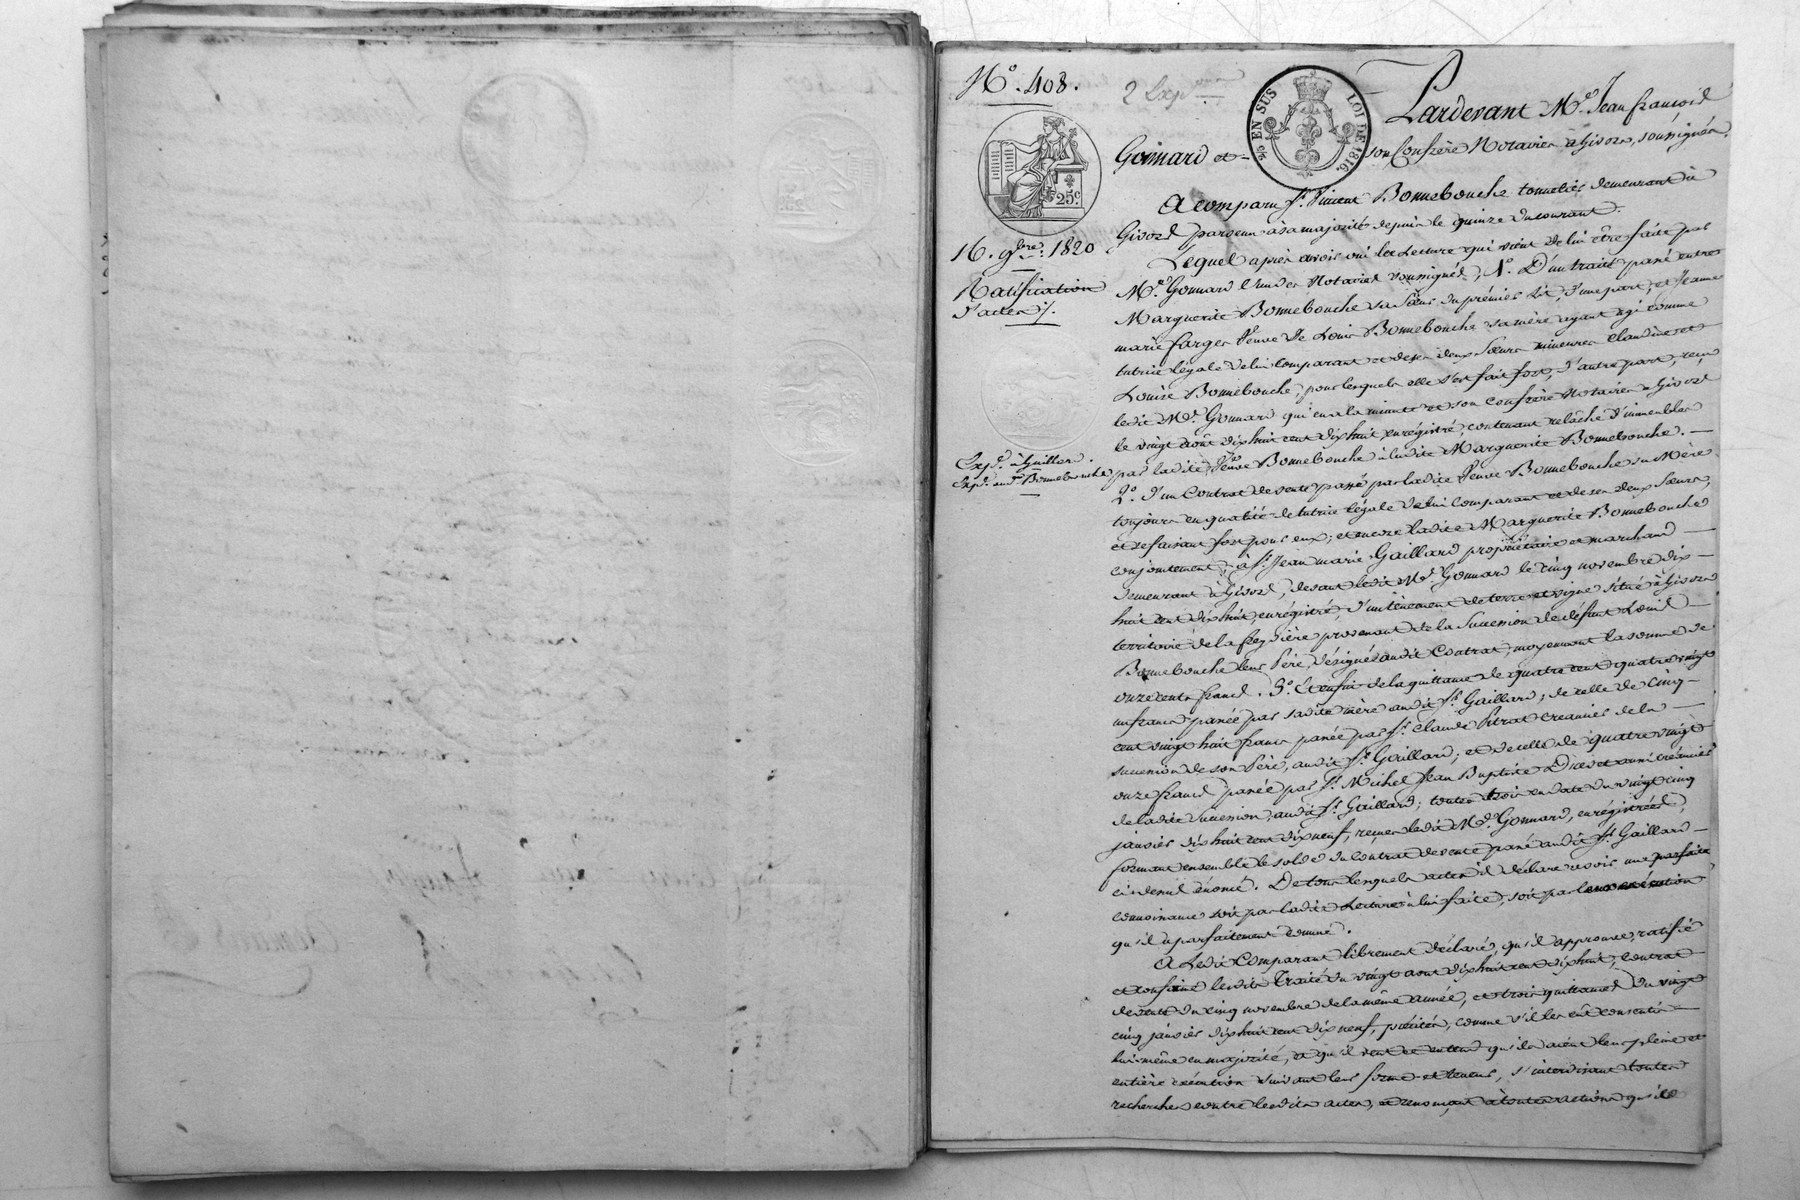 N.° 408.
2 Exp.
25c EN SUS LOI DE 1816.
25c
16. 9bre 1820
Ratification
d'actes ./.
Exp.on à Gaillard.
Exp.on aux Bonnebouche
Pardevant M.e Jean françois
Gonnard et son Confrère Notaires à Givors, soussignés.
A comparu Sr. Vincent Bonnebouche tonnelier demeurant à
Givors parvenu à sa majorité depuis le quinze du courant.
Lequel après avoir oui la Lecture qui vient de lui être faite par
M.e Gonnard l'un des Notaires soussignés, 1.° D'un traité passé entre
Marguerite Bonnebouche sa sœur du prémier lit, d'une part, et Jeanne
marie farges Veuve de Louis Bonnebouche sa mère ayant agi comme
tutrice légale de lui comparant et de ses deux Sœurs mineures Claudine et
Louise Bonnebouche, pour lesquels elle s'est fait fort, d'autre part, reçu
ledit M.e Gonnard qui en a la minute et son confrère Notaires à Givors
le vingt août dix huit cent dix huit enrégistré, contenant relâche d'immeubles
par ladite Veuve Bonnebouche à ladite Marguerite Bonnebouche. —
2.° d'un Contrat de vente passé par ladite Veuve Bonnebouche sa Mère
toujours en qualité de tutrice légale de lui Comparant et de ses deux Sœurs,
et se faisant fort pour eux; et encore ladite Marguerite Bonnebouche
conjointement, à Sr. Jean marie Gaillard propriétaire et marchand —
demeurant à Givors, devant ledit M.e Gonnard le cinq novembre dix —
huit cent dix huit, enrégistré, d'un tènement de terre et vigne situé à Givors
territoire de la freydière provenant de la Succession de défunt Louis —
Bonnebouche leur Père, désigné audit Contrat, moyennant la somme de
onze cents francs. 3.° Et enfin de la quittance de quatre cent quatre vingt
un francs passée par sadite mère audit Sr. Gaillard; de celle de Cinq —
cent vingt huit francs passée par Sr. Claude Pitrat créancier de la —
succession de son Père, audit Sr. Gaillard; et de celle de quatre vingt
onze francs passée par Sr. Michel Jean Baptiste aussi créancier
de ladite succession, audit Sr. Gaillard; toutes trois en date du vingt cinq
janvier dix huit cent dix neuf, reçues ledit M.e Gonnard, enrégistrées,
formant ensemble le solde du contrat de vente passé audit Sr. Gaillard —
ci dessus énoncé. De tous lesquels actes il déclare avoir une parfaite
connoissance soit par ladite Lecture à lui faite, soit par leur exécution
qu'il a parfaitement connue.
A Ledit Comparant librement déclaré, qu'il approuve, ratifie
et confirme lesdits Traité du vingt aout dix huit cent dix huit, Contrat
de vente du cinq novembre de la même année, et trois quittances du vingt
cinq janvier dix huit cent dix neuf, précités, comme s'il les eût consentis —
lui-même en majorité, et qu'il veut et entend qu'ils aient leur pleine et
entière exécution suivant leur forme et teneur, s'interdisant toutes
recherches contre lesdits actes, et renonçant à toutes actions qu'il